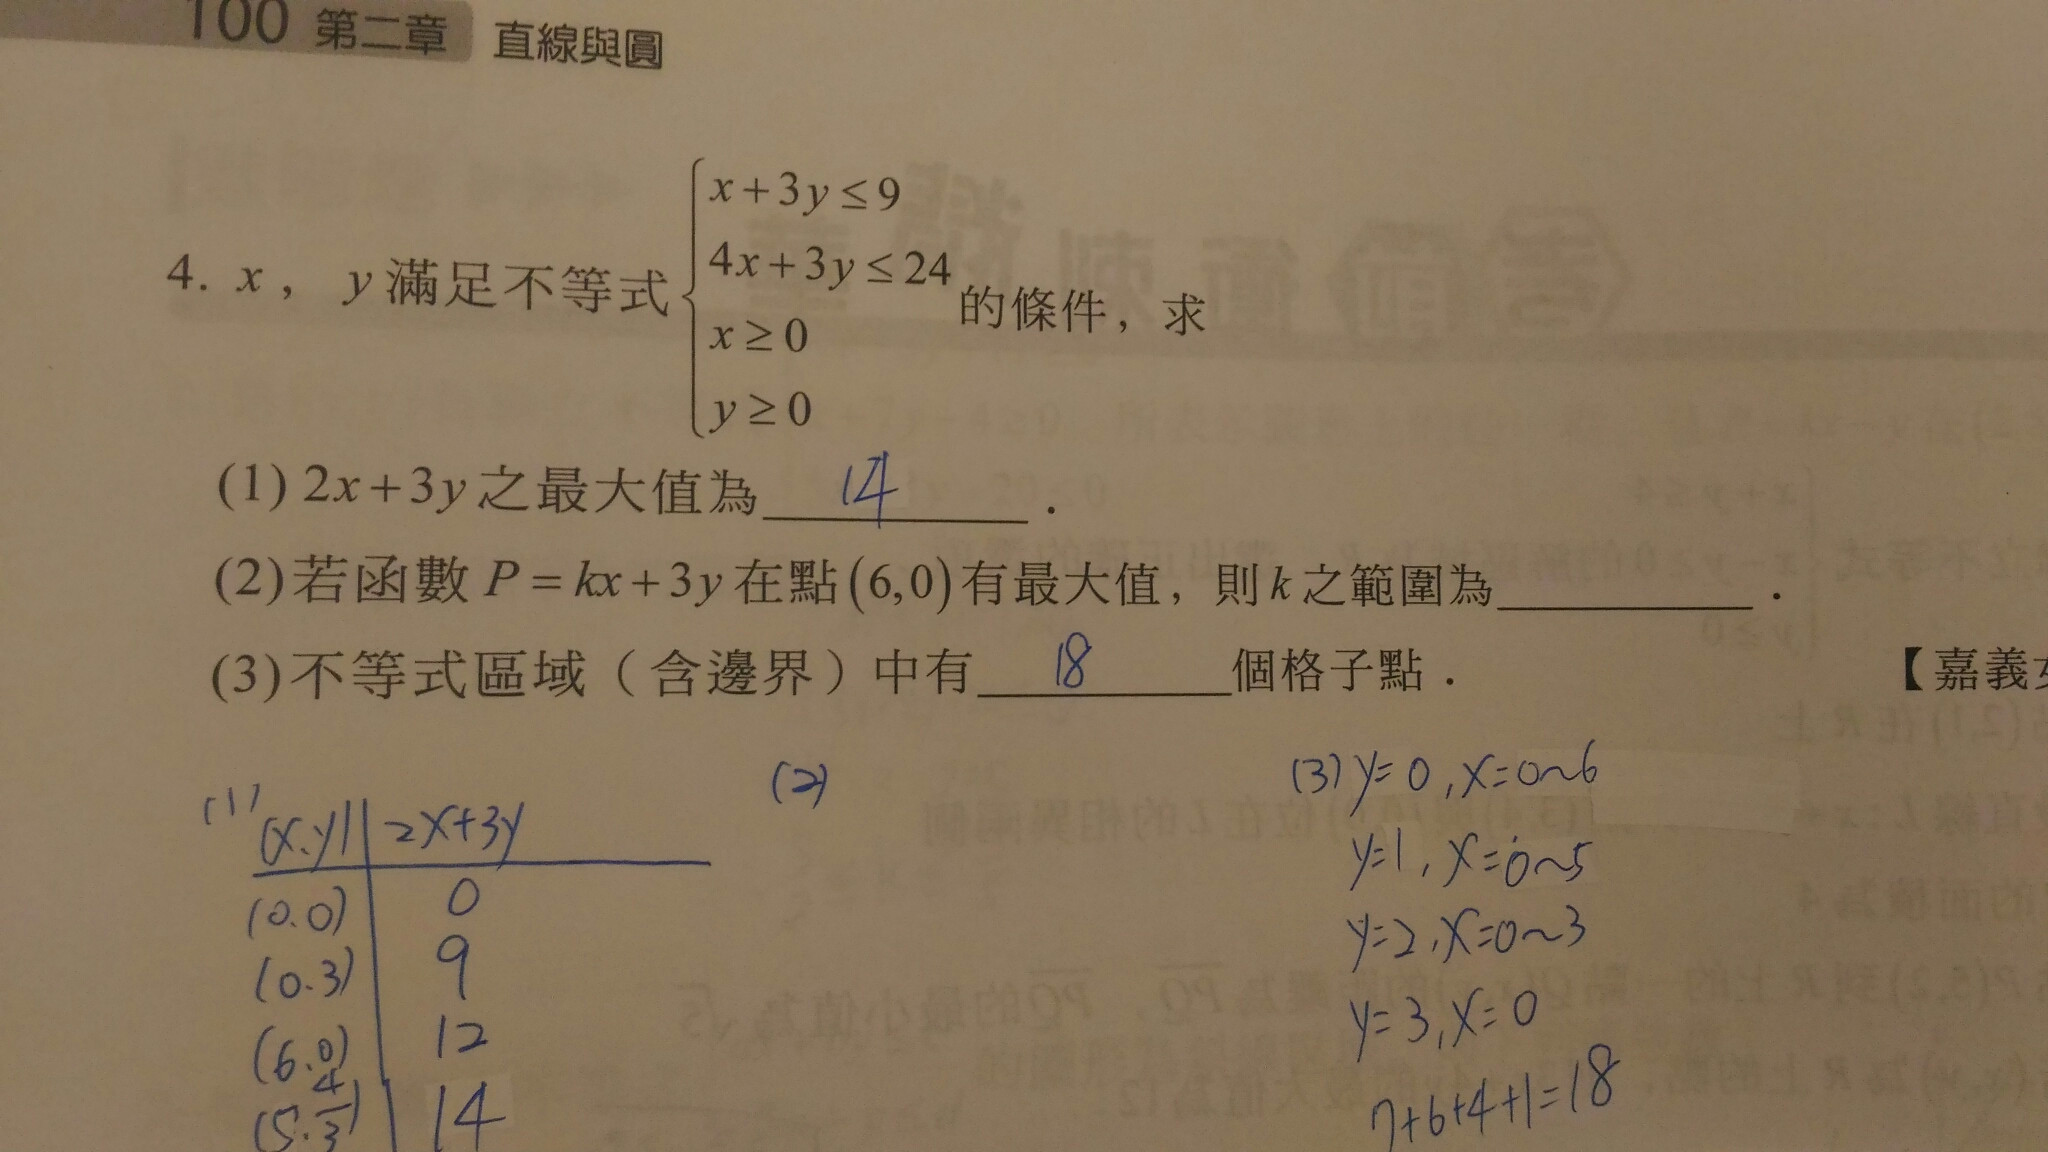 100 第二章 直線與圓
x+3y≤9
4x+3y≤24
4. x， y滿足不等式 的條件，求
x≥0
y≥0
(1) 2x+3y之最大值為 14 .
(2)若函數 P=kx+3y在點(6,0)有最大值，則k之範圍為 .
(3)不等式區域（含邊界）中有 18 個格子點. 【嘉義
(1) (x.y) 2x+3y
(0.0) 0
(0.3) 9
(6.0) 12
(5.4/3) 14
(2)
(3) y=0, x=0~6
y=1, x=0~5
y=2, x=0~3
y=3, x=0
7+6+4+1=18